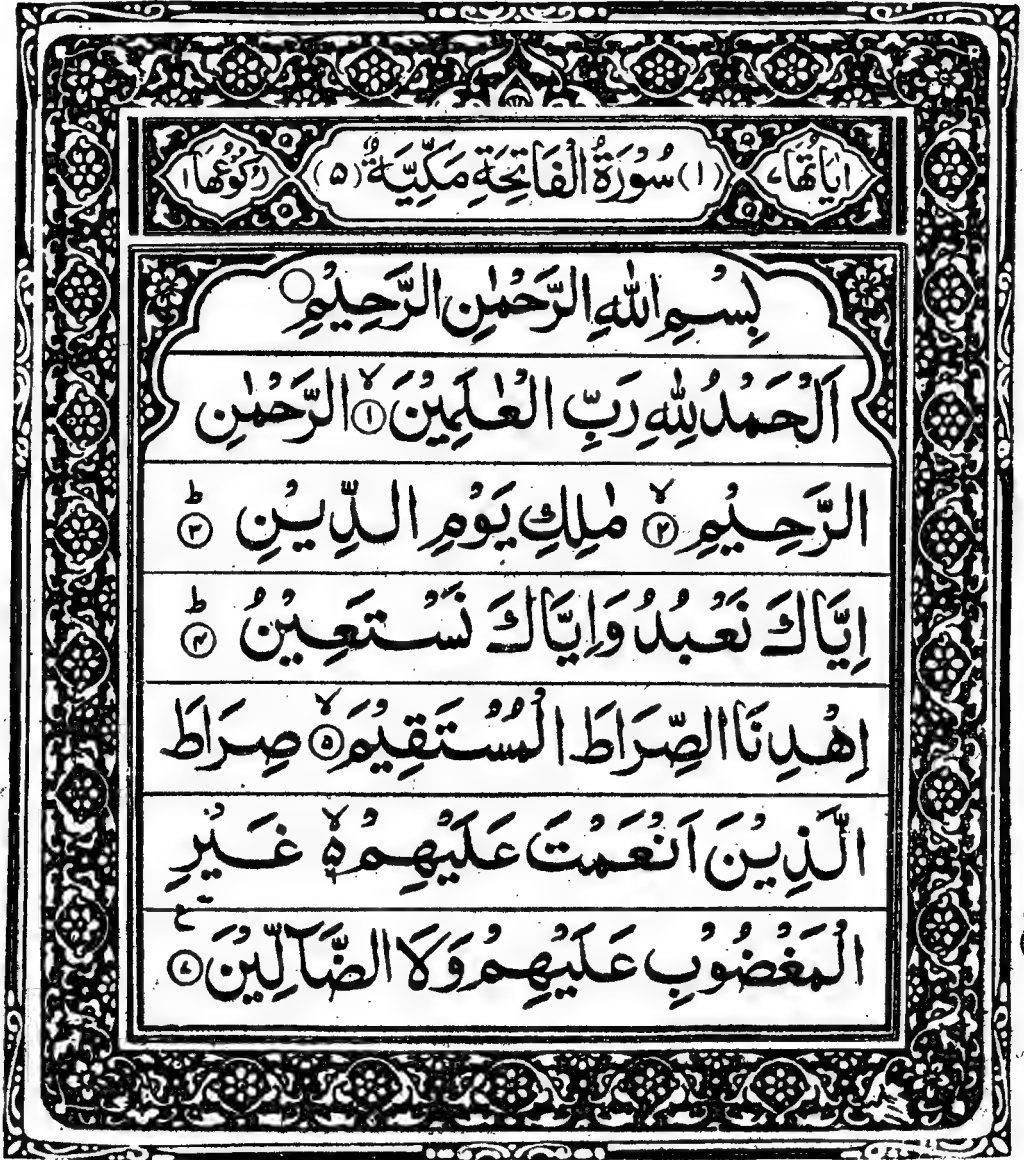 اٰیَاتُهَا ۷ (۱) سُوْرَةُ الْفَاتِحَةِ مَكِّیَّةٌ (۵) رُكُوْعُهَا ۱
بِسْمِ اللهِ الرَّحْمٰنِ الرَّحِیْمِ ○
اَلْحَمْدُ لِلّٰهِ رَبِّ الْعٰلَمِیْنَ ۙ﴿۱﴾ الرَّحْمٰنِ
الرَّحِیْمِ ۙ﴿۲﴾ مٰلِكِ یَوْمِ الدِّیْنِ ؕ﴿۳﴾
اِیَّاكَ نَعْبُدُ وَاِیَّاكَ نَسْتَعِیْنُ ؕ﴿۴﴾
اِهْدِنَا الصِّرَاطَ الْمُسْتَقِیْمَ ۙ﴿۵﴾ صِرَاطَ
الَّذِیْنَ اَنْعَمْتَ عَلَیْهِمْ ۙ۵ غَیْرِ
الْمَغْضُوْبِ عَلَیْهِمْ وَلَا الضَّآلِّیْنَ ﴿۷﴾ ع